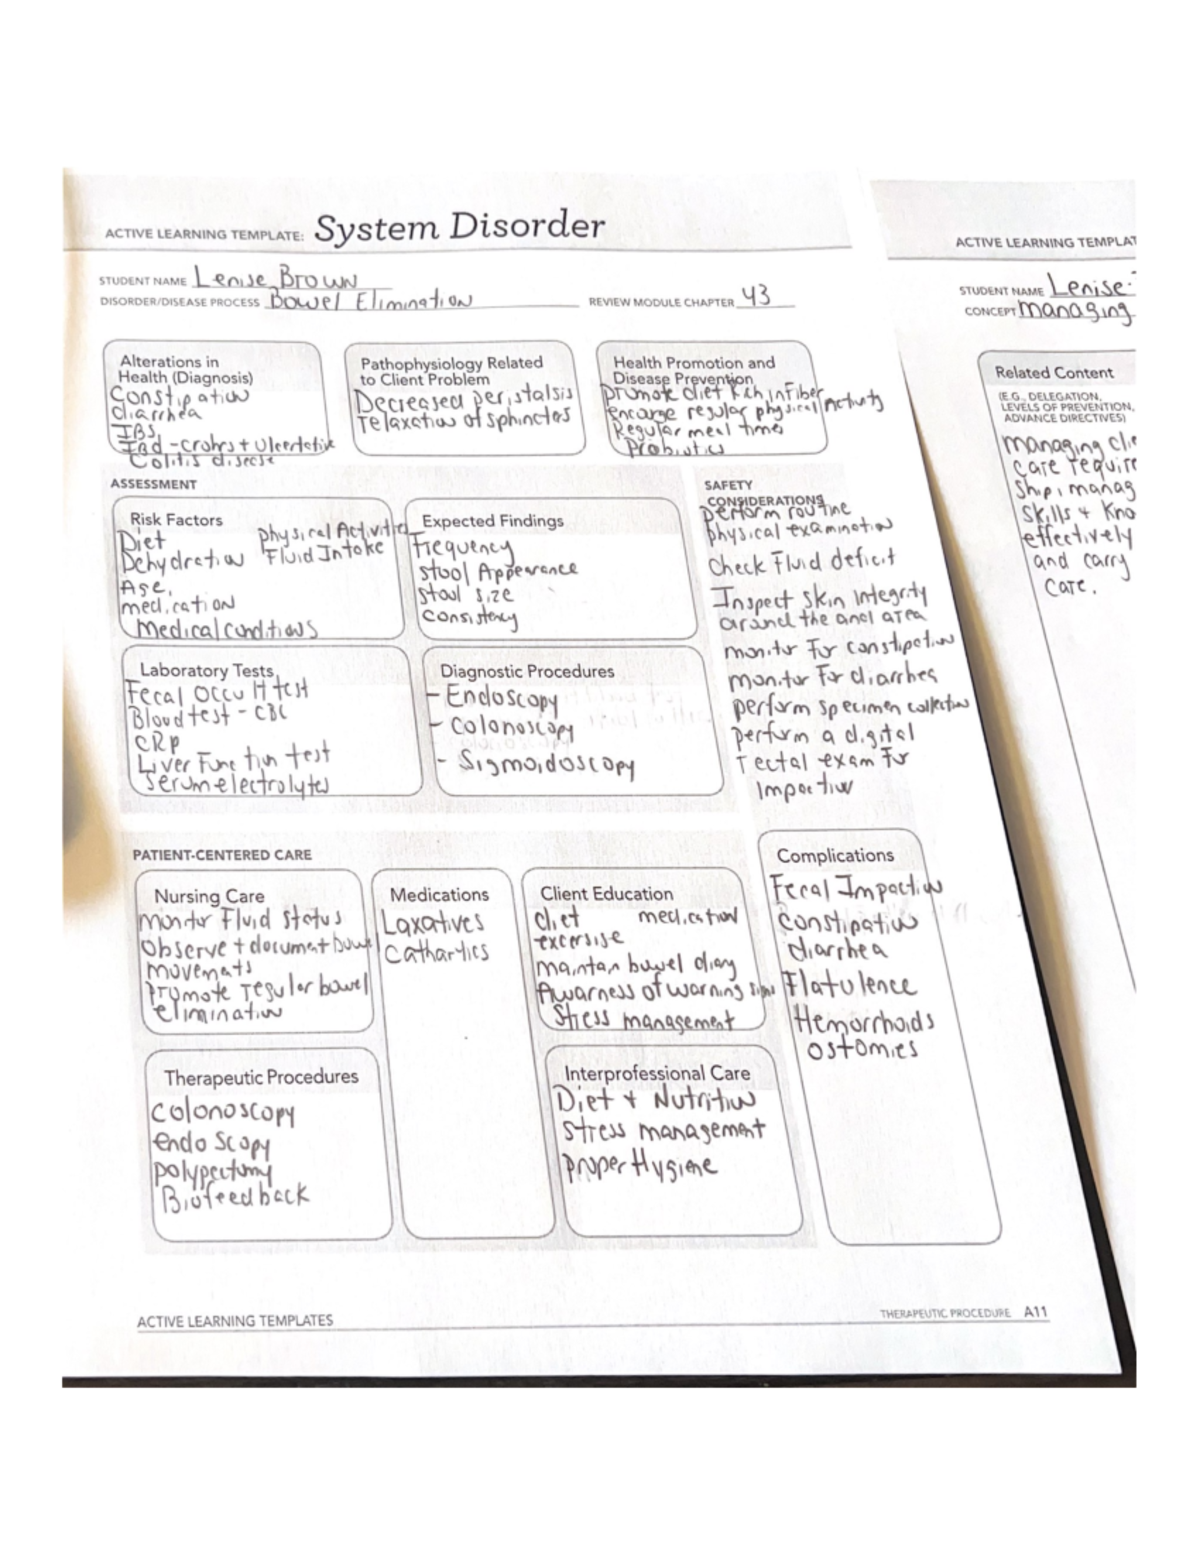 ACTIVE LEARNING TEMPLATE: System Disorder
STUDENT NAME Lenise Brown
DISORDER/DISEASE PROCESS Bowel Elimination REVIEW MODULE CHAPTER 43
Alterations in
Health (Diagnosis)
Constipation
diarrhea
IBS
Ibd - crohns + Ulcertative
Colitis disese
Pathophysiology Related
to Client Problem
Decreased peristalsis
relaxation of sphinctors
Health Promotion and
Disease Prevention
promote diet Rich in Fiber
encarge regular physical Activity
Regular meal times
Probiotics
ASSESSMENT
Risk Factors
Diet physical Activities
Dehydration Fluid Intake
Age,
medication
Medical conditions
Expected Findings
Frequency
stool Appearance
stool size
consistency
Laboratory Tests
Fecal Occult test
Blood test - CBC
CRP
Liver Function test
Serum electrolytes
Diagnostic Procedures
- Endoscopy
- Colonoscopy
- Sigmoidoscopy
SAFETY
CONSIDERATIONS
perform routine
physical examination
check Fluid deficit
Inspect skin integrity
around the anal area
monitor for constipation
monitor for diarrhea
perform specimen collection
perform a digital
rectal exam for
impaction
PATIENT-CENTERED CARE
Nursing Care
monitor Fluid status
observe + document bowel
movements
promote regular bowel
elimination
Medications
Laxatives
Cathartics
Client Education
diet medication
excersise
maintain bowel diary
Awarness of warning signs
Stress management
Therapeutic Procedures
Colonoscopy
endoscopy
polypectomy
Biofeedback
Interprofessional Care
Diet + Nutrition
stress management
proper Hygiene
Complications
Fecal Impaction
constipation
diarrhea
Flatulence
Hemorrhoids
ostomies
ACTIVE LEARNING TEMPLATES
THERAPEUTIC PROCEDURE A11
ACTIVE LEARNING TEMPLAT
STUDENT NAME Lenise
CONCEPT managing
Related Content
(E.G., DELEGATION,
LEVELS OF PREVENTION,
ADVANCE DIRECTIVES)
managing clie
care require
ship, manag
skills + kno
effectively
and carry
care.